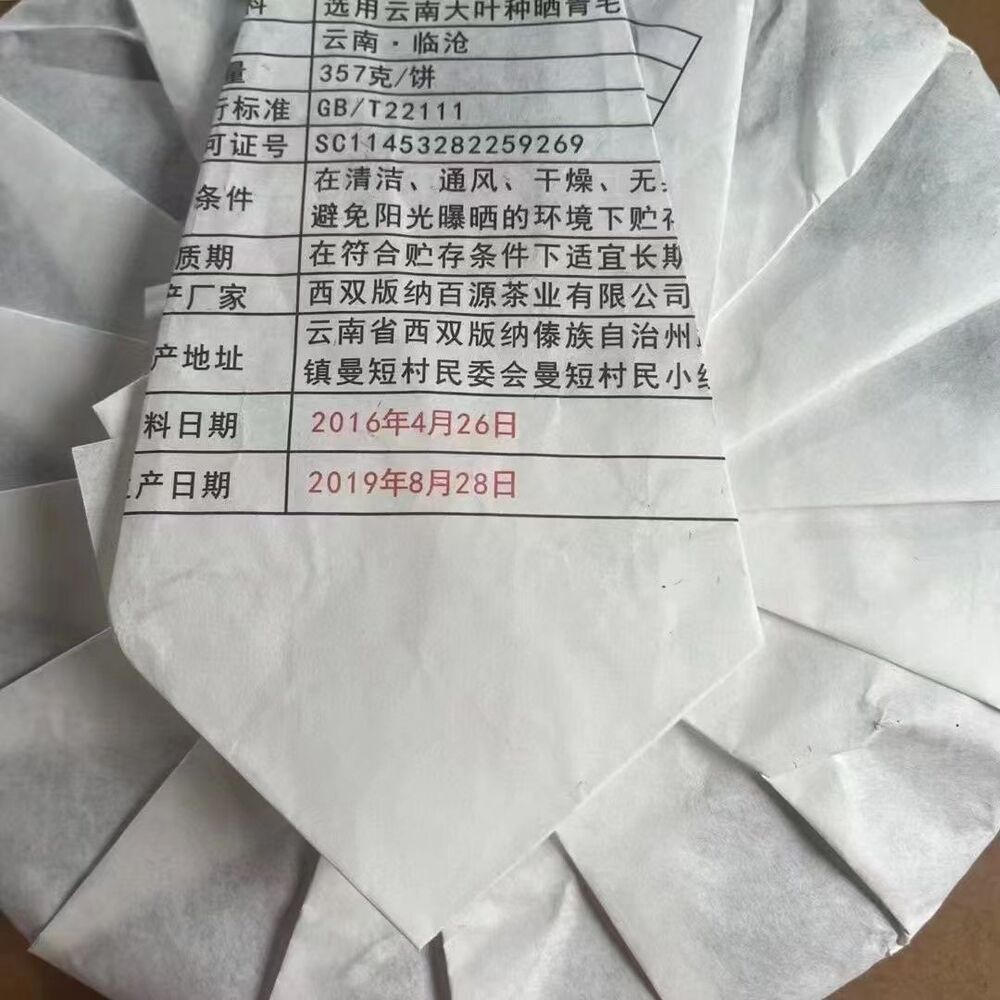 料 选用云南大叶种晒青毛
云南·临沧
量 357克/饼
行标准 GB/T22111
可证号 SC11453282259269
条件 在清洁、通风、干燥、无
避免阳光曝晒的环境下贮存
质期 在符合贮存条件下适宜长期
产厂家 西双版纳百源茶业有限公司
产地址 云南省西双版纳傣族自治州
镇曼短村民委会曼短村民小组
料日期 2016年4月26日
生产日期 2019年8月28日